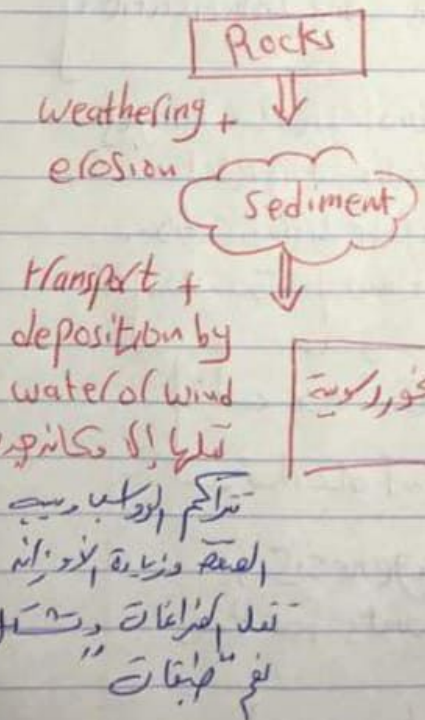 Rocks
weathering +
erosion
Sediment
transport +
deposition by
water or wind
نقلها إلى مكان جديد
صخور رسوبية
تتراكم الرواسب وبسبب
الضغط وزيادة الأوزان
تقل الفراغات وتتشكل
نعم "طبقات"